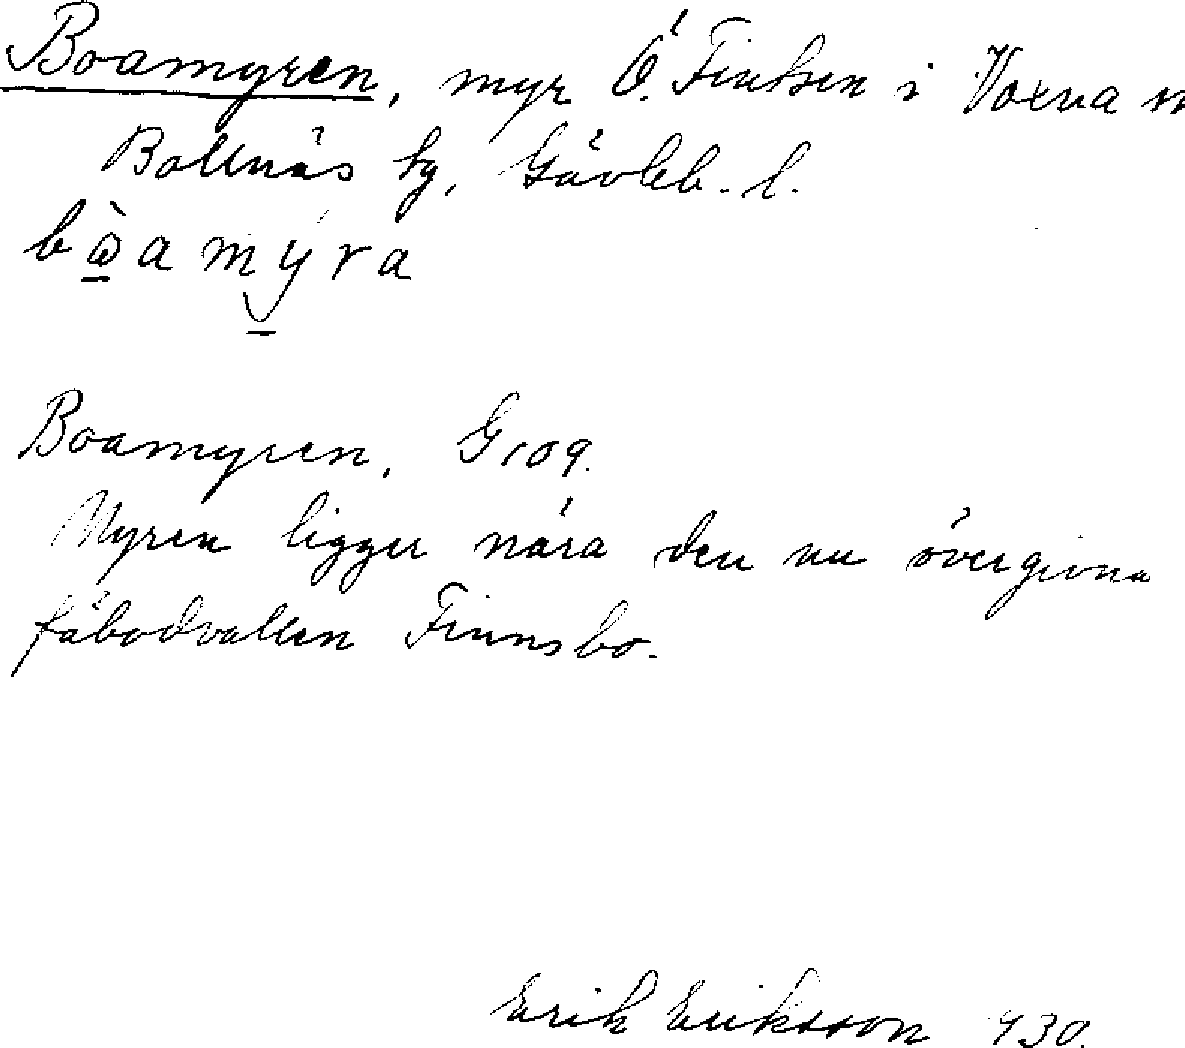 Boamyren, myr Ö. Fintsen i Voxna
Bollnäs tg, Gävleb. l.
Boamyren, G 109.
Myren ligger nära den nu övergivna
fäbodvallen Finnsbo.
Erik Eriksson 930.